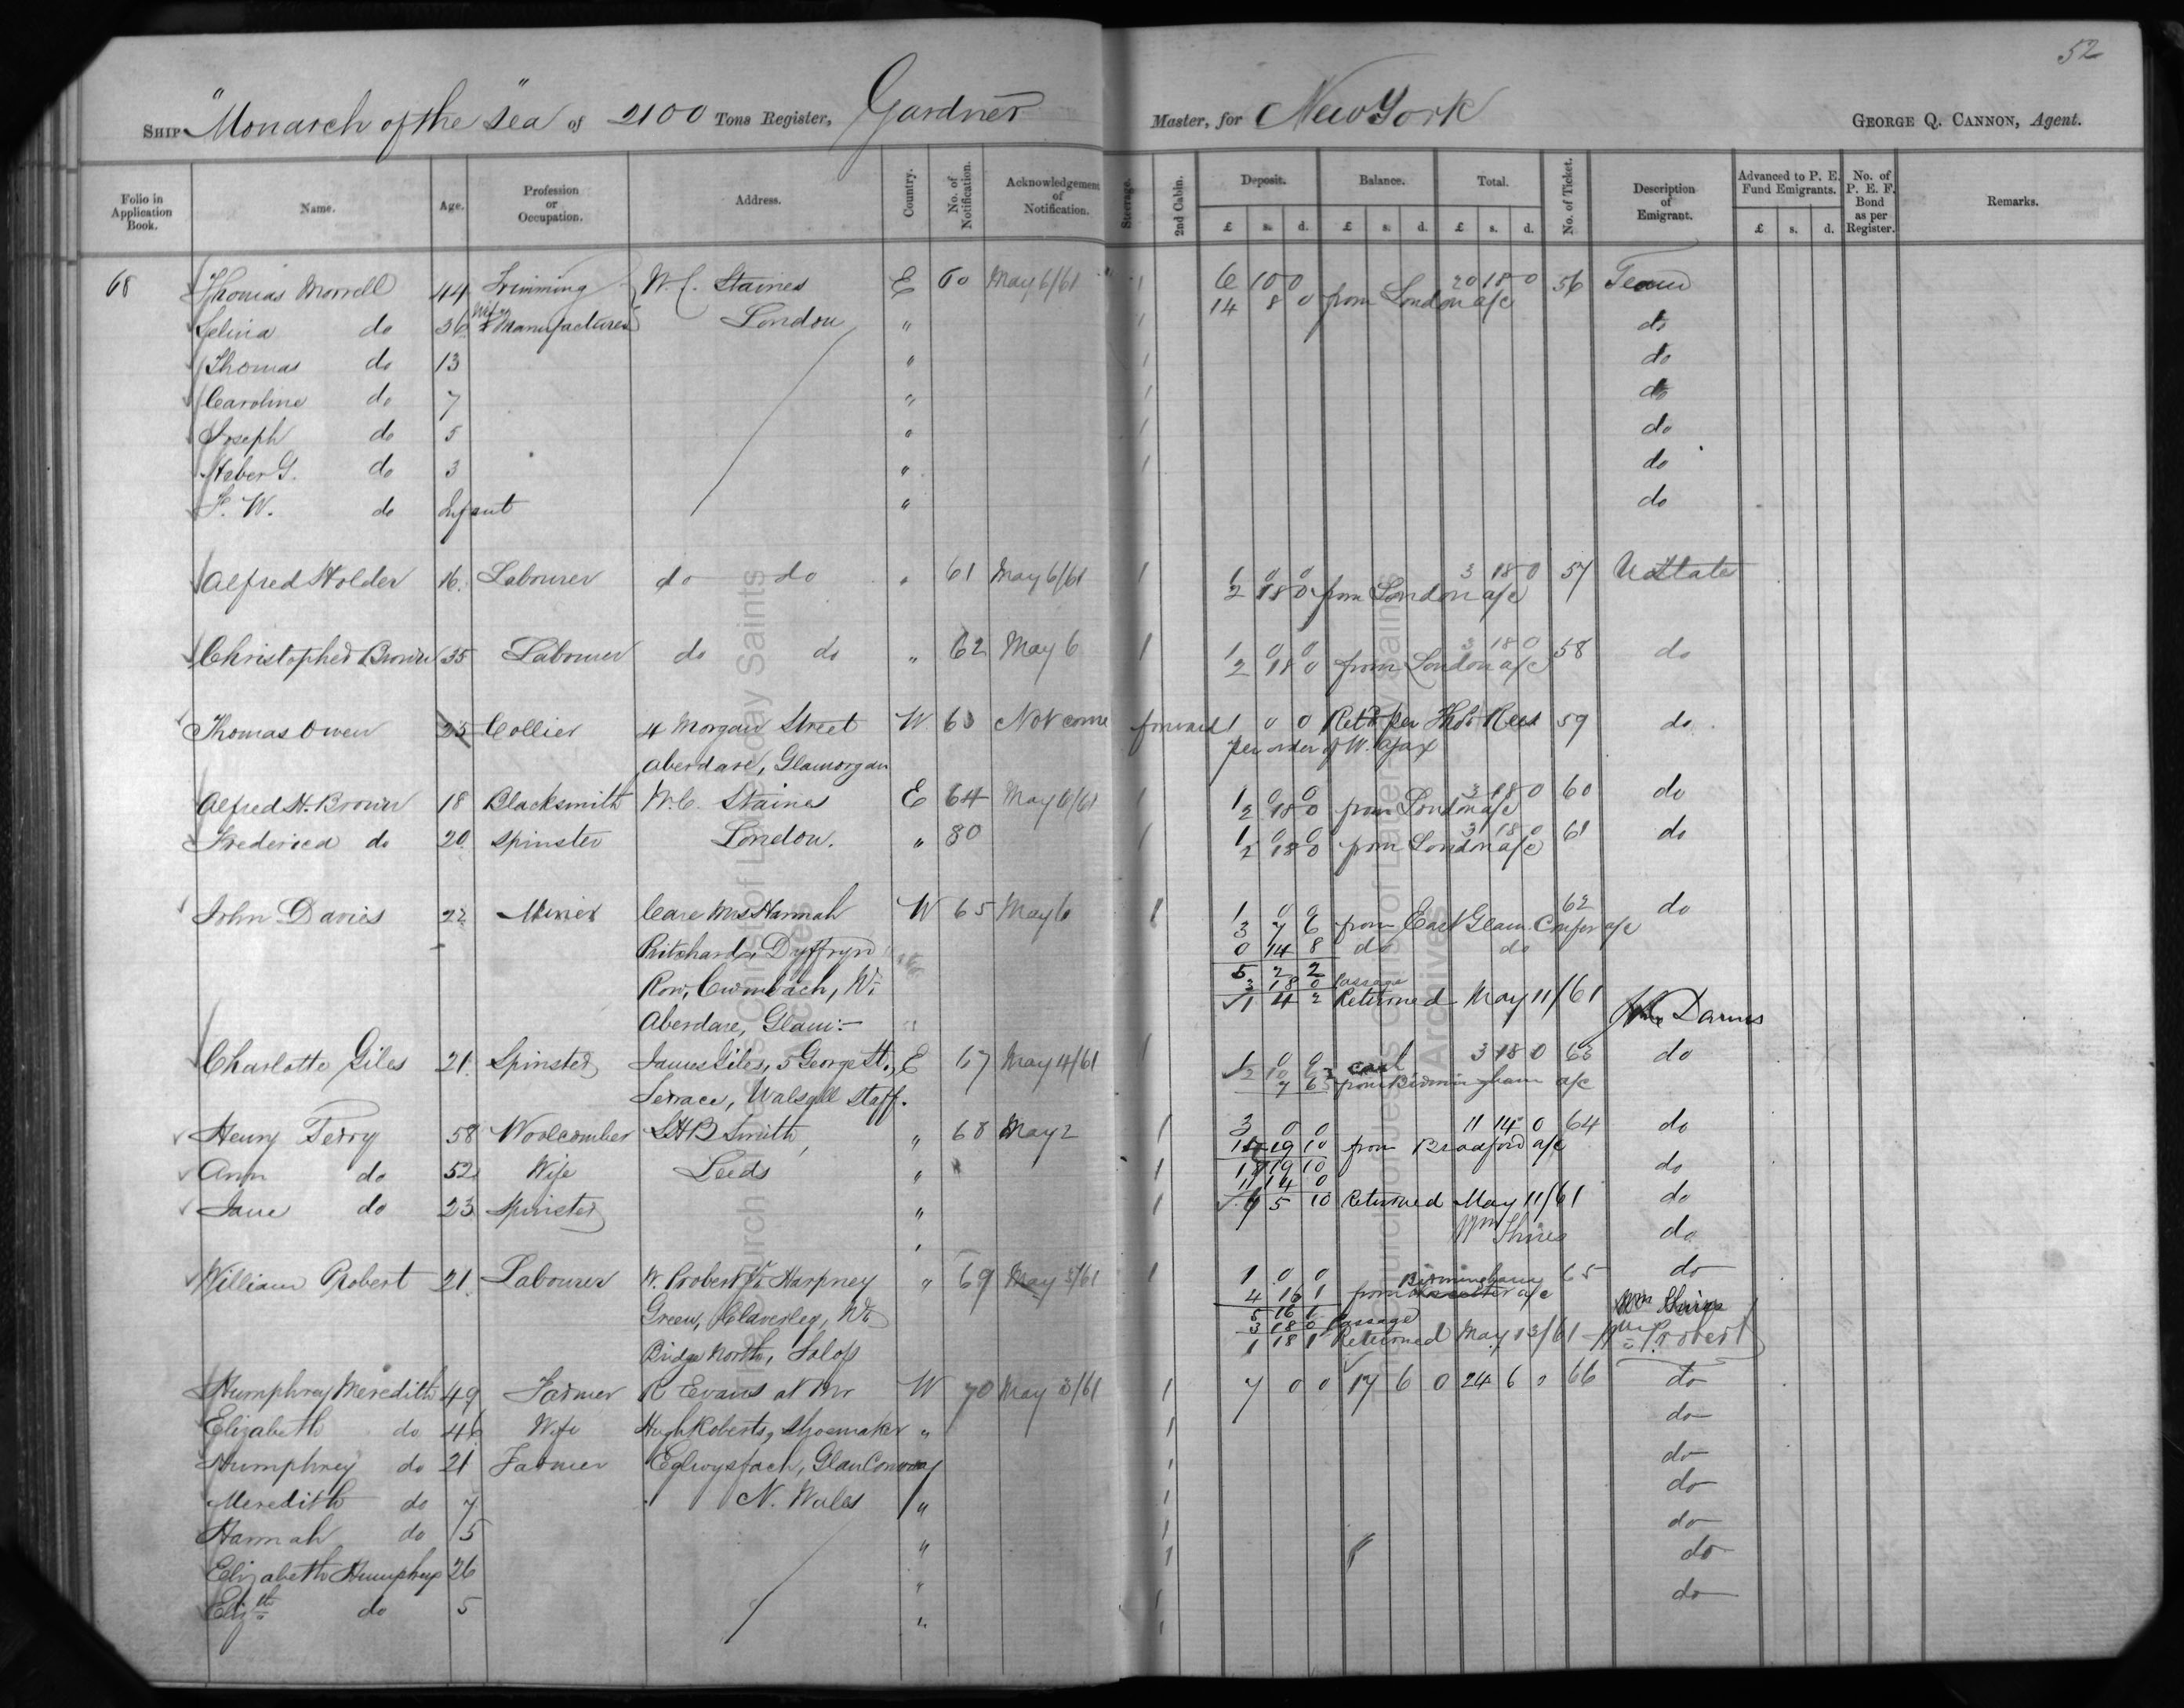 52
SHIP "Monarch of the Sea" of 2100 Tons Register, Gardner Master, for New York GEORGE Q. CANNON, Agent.
Folio in Application Book. Name. Age. Profession or Occupation. Address. Country. No. of Notification. Acknowledgement of Notification. Steerage. 2nd Cabin. Deposit. Balance. Total. No. of Ticket. Description of Emigrant. Advanced to P. E. Fund Emigrants. No. of P. E. F. Bond as per Register. Remarks.
£ s. d. £ s. d. £ s. d. £ s. d.
68 Thomas Morrell 44 Trimming W. C. Staines E 60 May 6/61 1 6 10 0 20 18 0 56 Team
14 8 0 from London a/c
Selina do 36 Wife & Manufacturer London " 1 do
Thomas do 13 " 1 do
Caroline do 7 " 1 do
Joseph do 5 " 1 do
Heber G. do 3 " 1 do
F. W. do Infant " do
Alfred Holder 16 Labourer do do " 61 May 6/61 1 1 0 0 3 18 0 57 UStates
2 18 0 from London a/c
Christopher Brown 35 Labourer do do " 62 May 6 1 1 0 0 3 18 0 58 do
2 18 0 from London a/c
Thomas Owen 25 Collier 4 Morgan Street W. 63 Not come forward 1 0 0 Retd per Thos Rees 59 do
Aberdare, Glamorgan per order of W. Ajax
Alfred H. Brown 18 Blacksmith W. C. Staines E 64 May 6/61 1 1 0 0 3 18 0 60 do
2 18 0 from London a/c
Frederica do 20 Spinster London. " 80 1 1 0 0 3 18 0 61 do
2 18 0 from London a/c
John Davies 22 Miner Care Mrs Hannah W 65 May 6 1 1 0 0 62 do
3 7 6 from East Glam. Confer a/c
Pritchard, Dyffryn 0 14 8 do do
5 2 2
Row, Cwmbach, Nr 3 18 0 Passage
1 4 2 Returned May 11/61
Aberdare, Glam:- Davies
Charlotte Giles 21 Spinster James Giles, 5 George St. E 67 May 4/61 1 1 0 0 3 18 0 63 do
2 10 6 cash
Terrace, Walsall Staff. 7 6 from Birmingham a/c
Henry Terry 58 Woolcomber S H B Smith, " 68 May 2 1 3 0 0 11 14 0 64 do
19 10 from Bradford a/c
Ann do 52 Wife Leeds " 1 19 10 do
11 14 0
Jane do 23 Spinster " 1 5 10 Returned May 11/61 do
Wm Shires do
William Probert 21 Labourer W. Probert Harpney " 69 May 3/61 1 1 0 0 65 do
4 16 1 from Birmingham a/c
Green, Claverley, Nr 5 16 1 Wm Shires
3 18 0 Passage
Bridge North, Salop 1 18 1 Returned May 13/61 Wm Probert
Humphrey Meredith 49 Farmer R Evans at Mr W 70 May 3/61 1 7 0 0 17 6 0 24 6 0 66 do
Elizabeth do 46 Wife Hugh Roberts, Shoemaker " 1 do
Humphrey do 21 Farmer Eglwysfach, Glan Conway " 1 do
Meredith do 7 N. Wales " 1 do
Hannah do 5 " 1 do
Elizabeth Humphreys 26 " 1 do
Elizth do 5 " 1 do